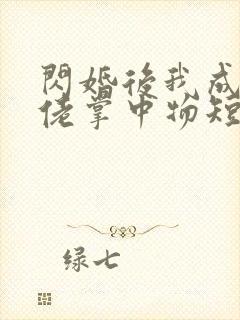 閃婚後我成
佬掌中物短
绿七